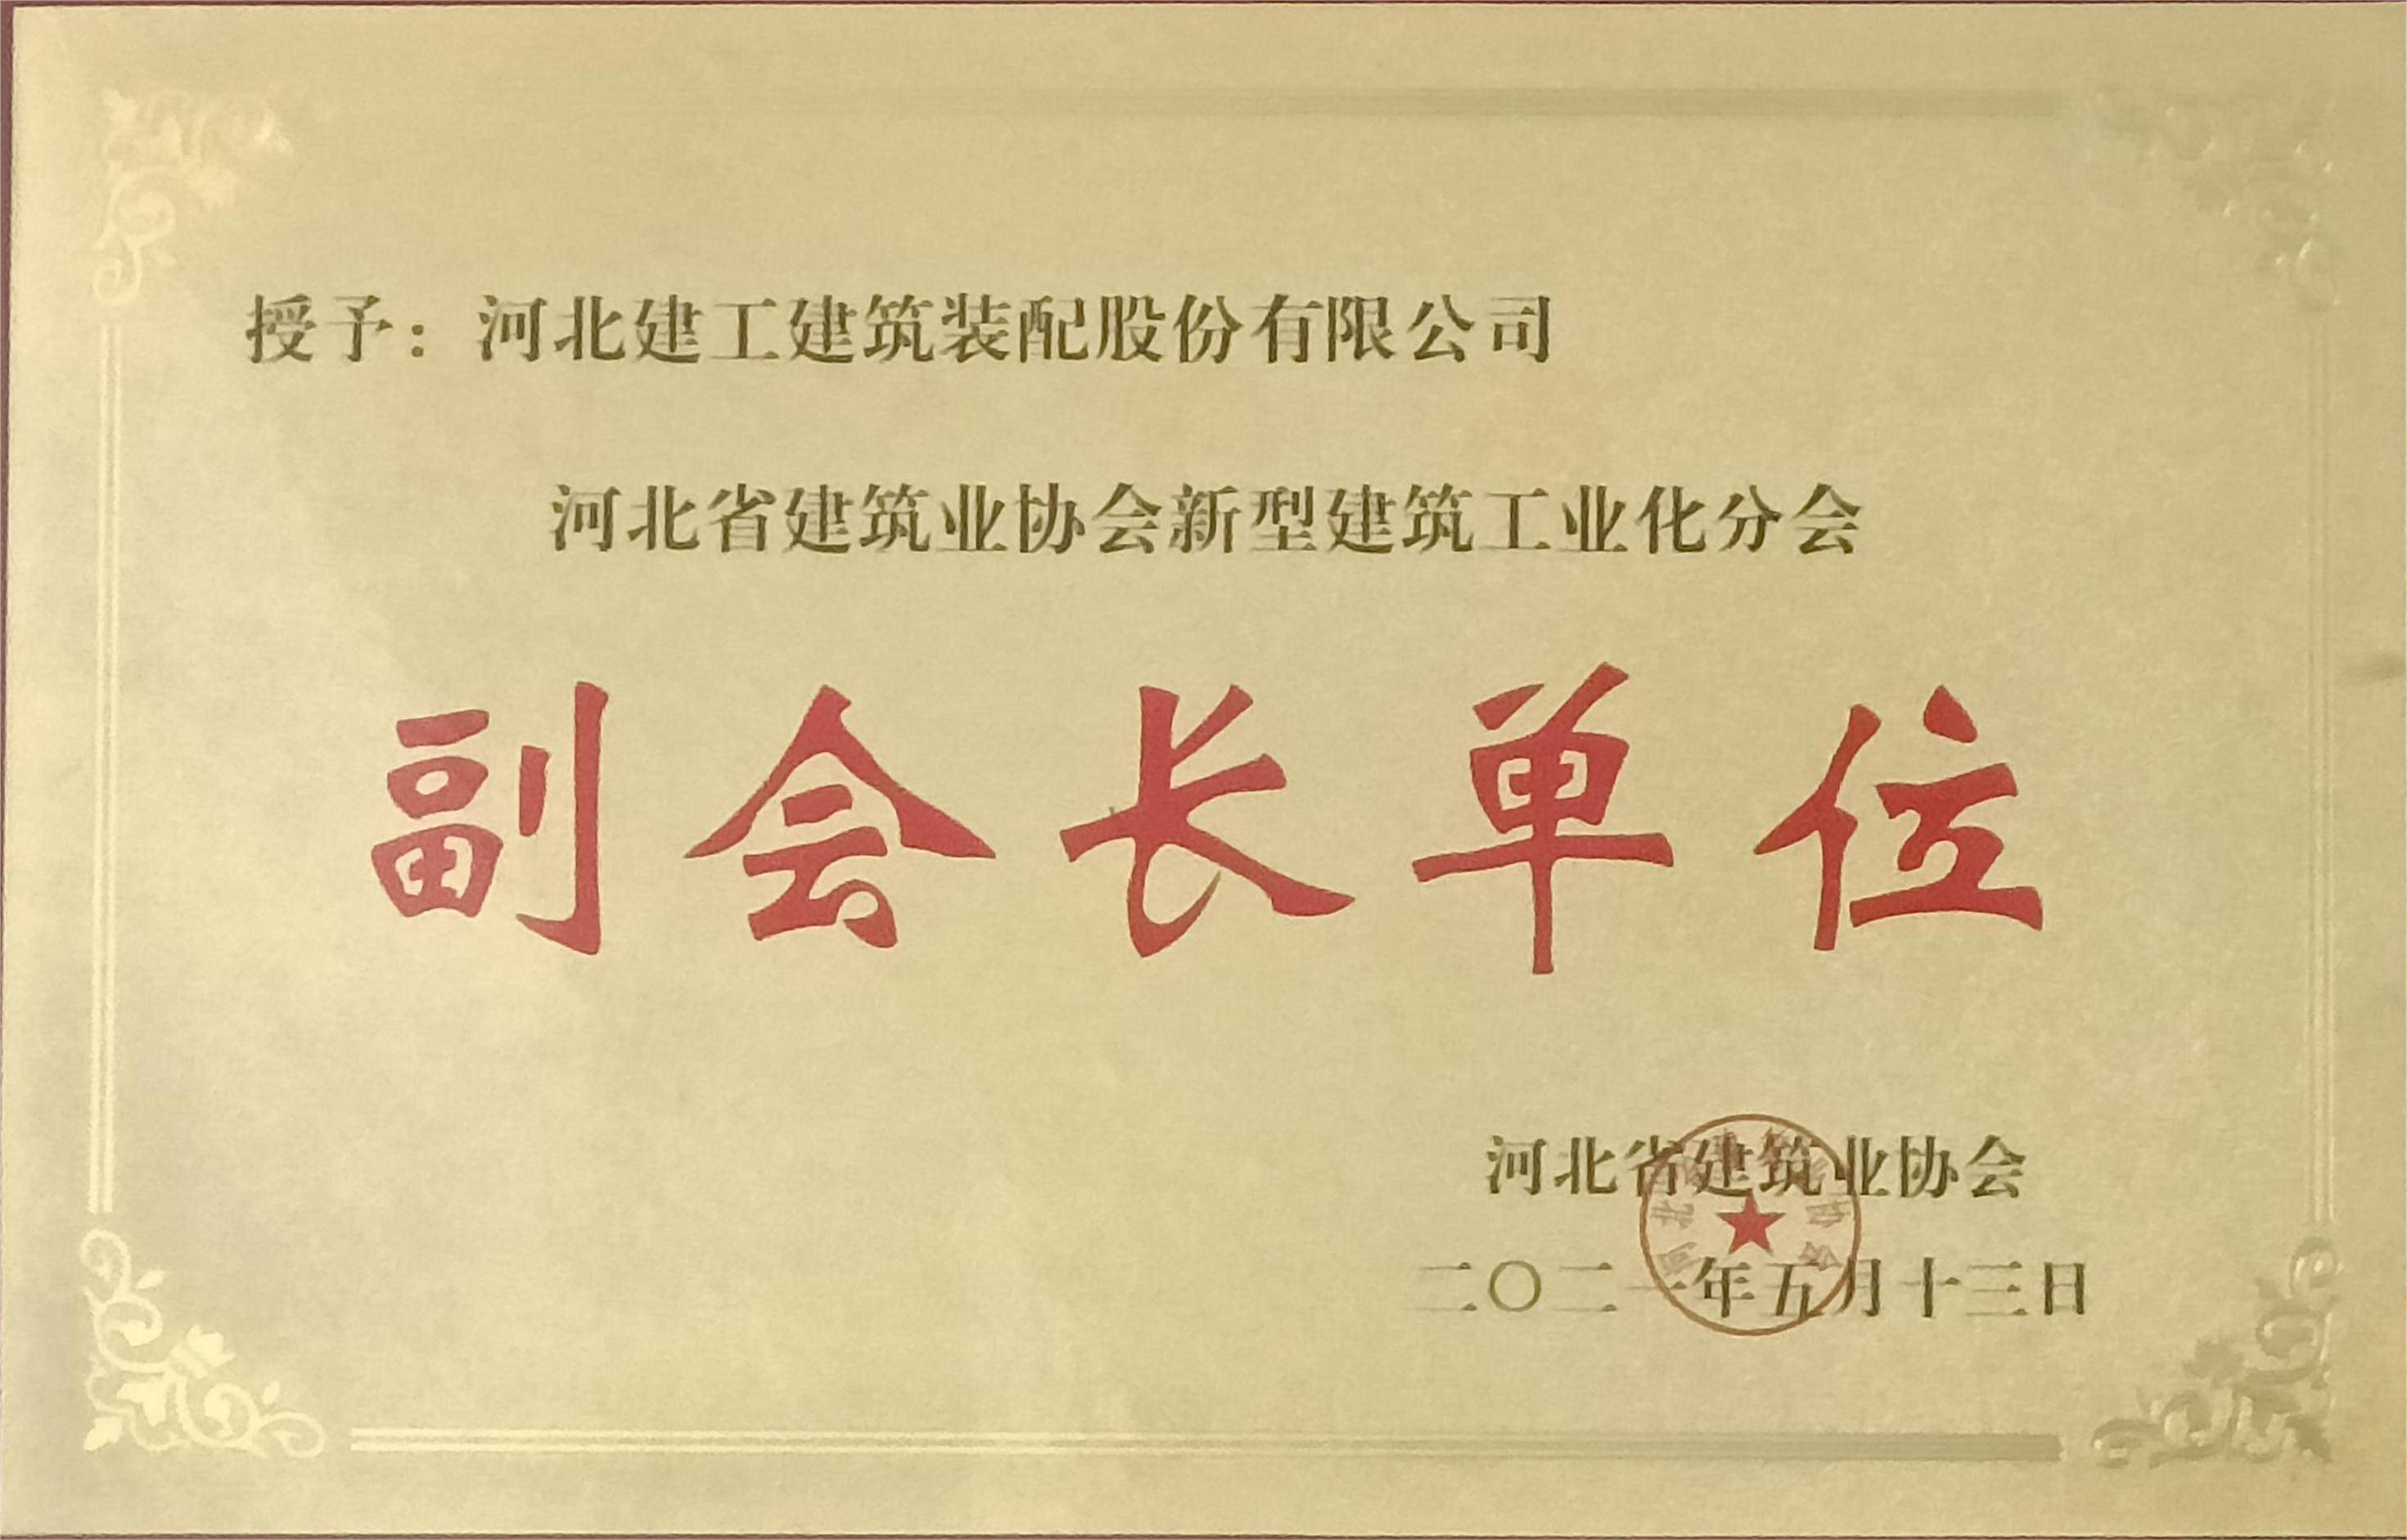 授予：河北建工建筑装配股份有限公司
河北省建筑业协会新型建筑工业化分会
副会长单位
河北省建筑业协会
二〇二一年五月十三日